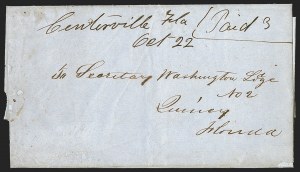 Centerville Fla / Paid 3
Oct 22
To Secretary Washington Ldge
No 2
Quincy
Florida